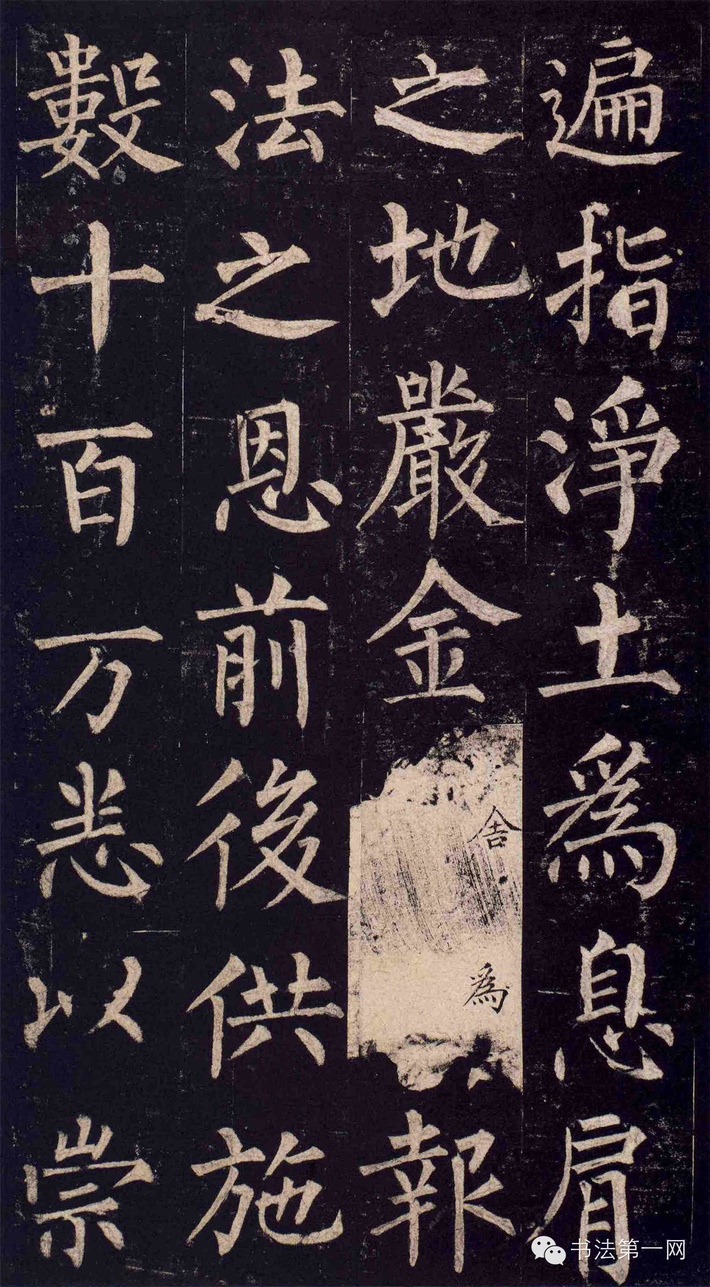 遍指淨土為息肩
之地嚴金舍為報
法之恩前後供施
數十百万悉以崇
书法第一网